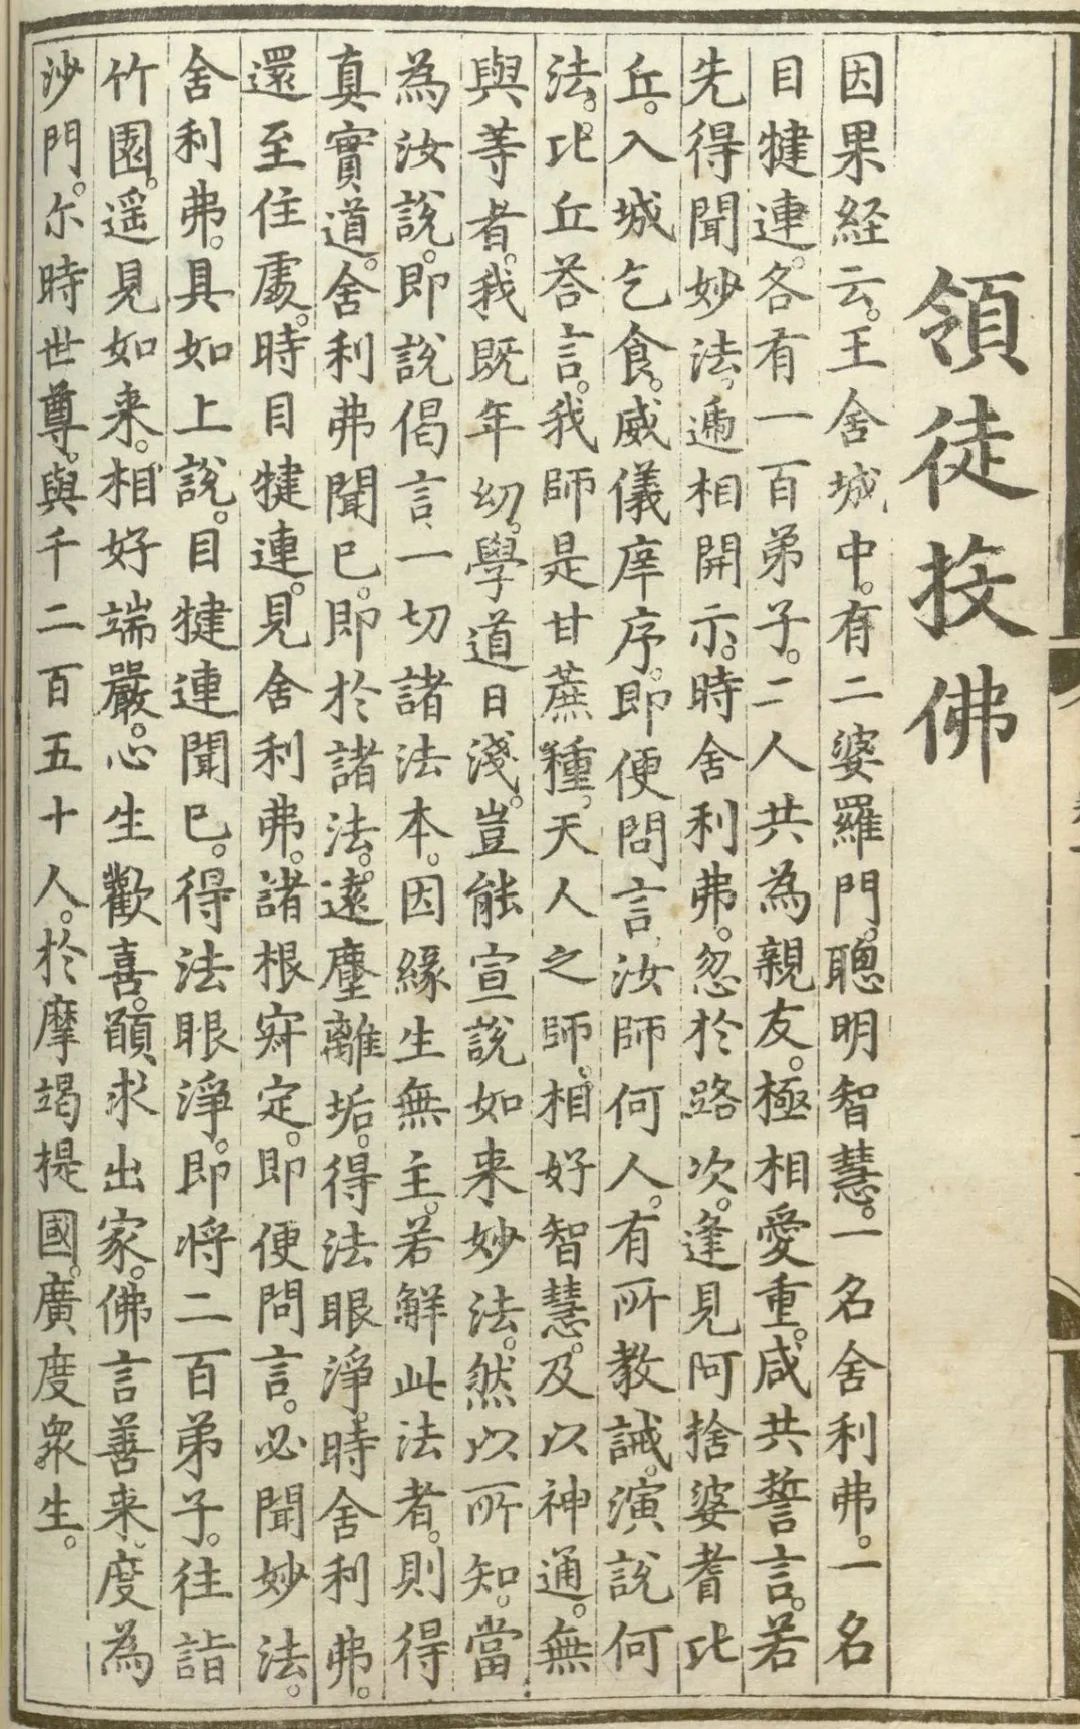 領徒投佛
因果経云。王舍城中。有二婆羅門。聰明智慧。一名舍利弗。一名
目犍連。各有一百弟子。二人共為親友。極相愛重。咸共誓言。若
先得聞妙法。逓相開示。時舍利弗。忽於路次。逢見阿捨婆耆比
丘。入城乞食。威儀庠序。即便問言。汝師何人。有所教誡。演說何
法。比丘荅言。我師是甘蔗種。天人之師。相好智慧。及以神通。無
與等者。我既年幼。學道日淺。豈能宣說如来妙法。然以所知。當
為汝說。即說偈言一切諸法本。因緣生無主。若解此法者。則得
真實道。舍利弗聞已。即於諸法。遠塵離垢。得法眼淨。時舍利弗。
還至住處。時目犍連。見舍利弗。諸根寂定。即便問言。必聞妙法。
舍利弗。具如上說。目犍連聞已。得法眼淨。即将二百弟子。往詣
竹園。遥見如来。相好端嚴。心生歡喜。願求出家。佛言善来。度為
沙門。尔時世尊。與千二百五十人。於摩竭提國。廣度衆生。